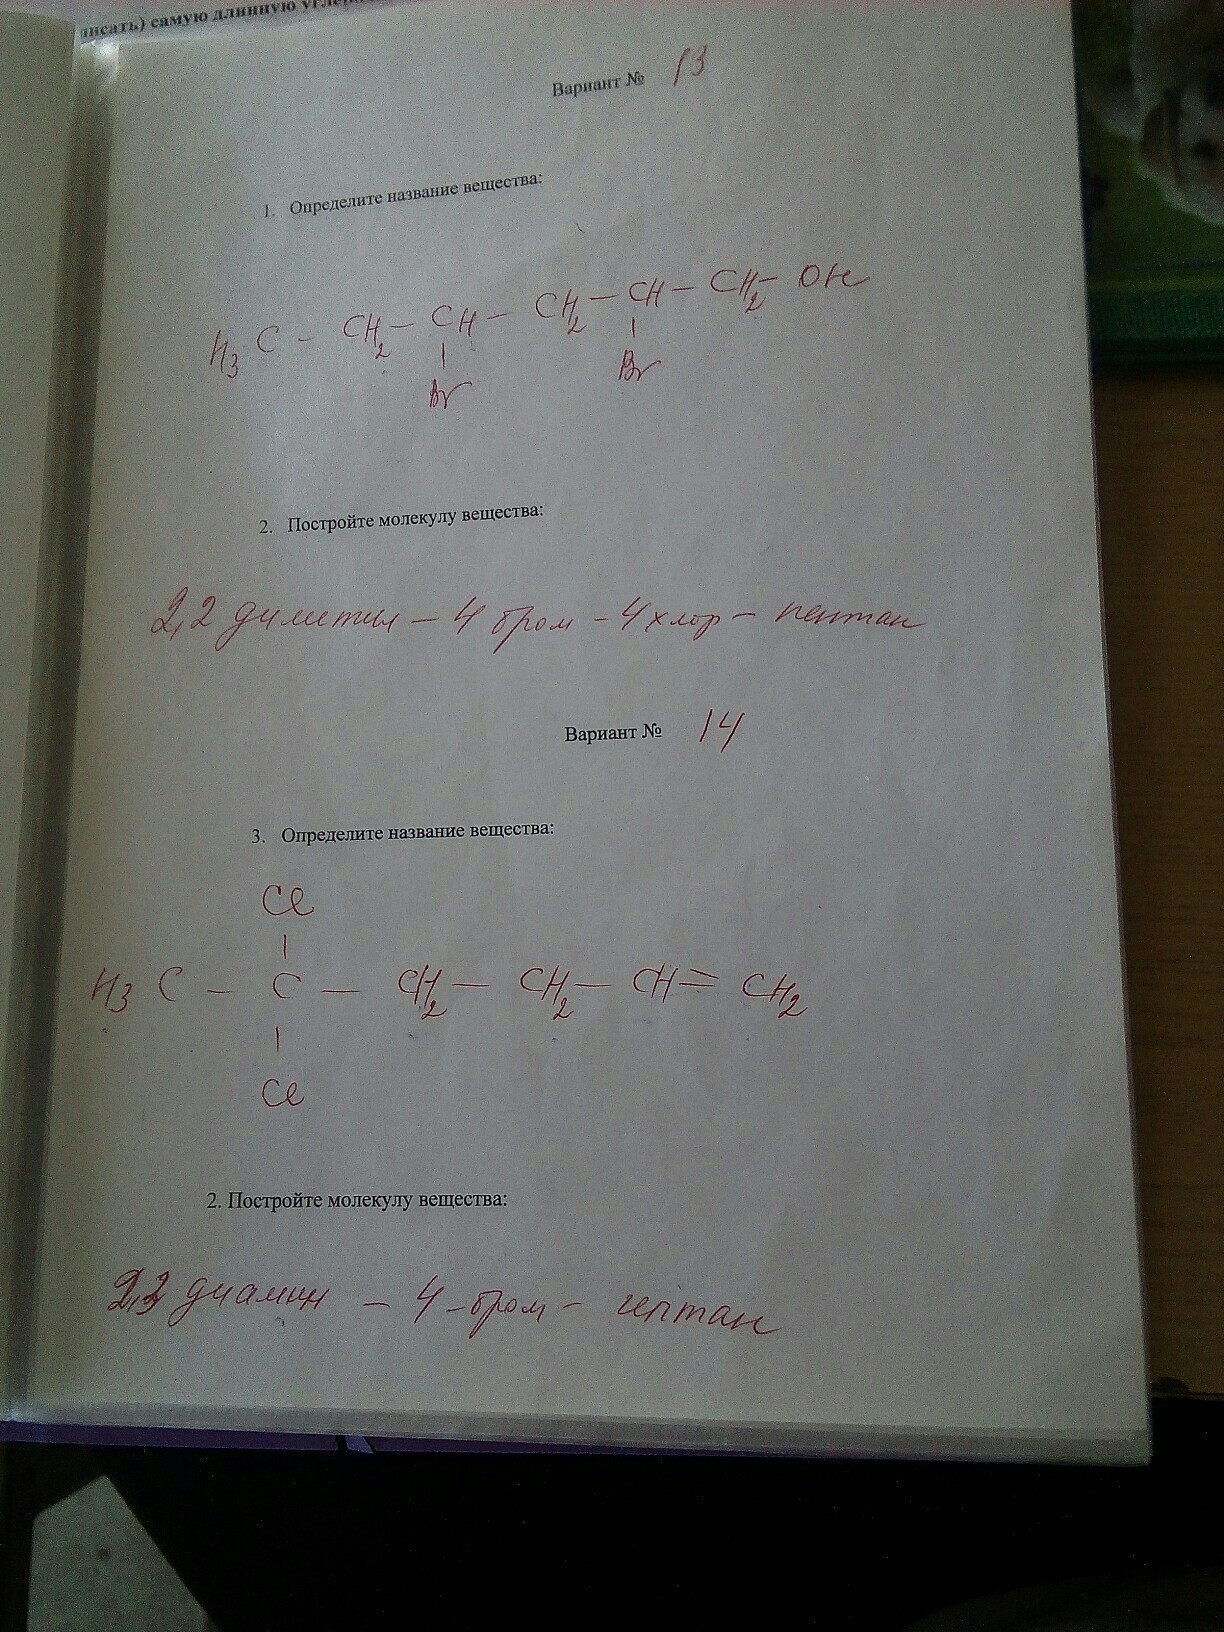 писать) самую длинную углер
Вариант № 13
1. Определите название вещества:
H3 C - CH2 - CH - CH2 - CH - CH2 - OH
Br Br
2. Постройте молекулу вещества:
2,2 диметил - 4 бром - 4 хлор - пентан
Вариант № 14
3. Определите название вещества:
Cl
H3 C - C - CH2 - CH2 - CH = CH2
Cl
2. Постройте молекулу вещества:
2,3 диамин - 4 - бром - гептан